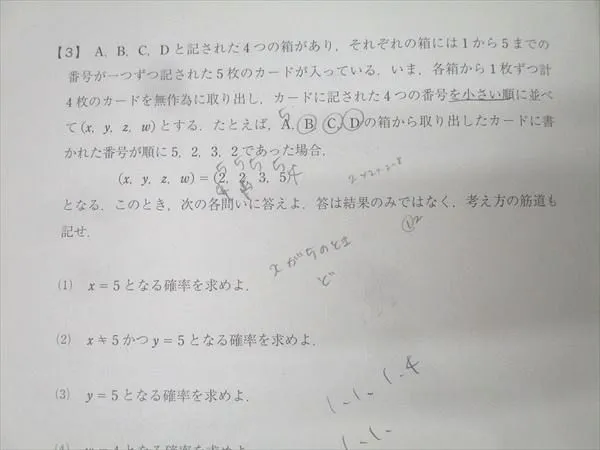 【3】 A，B，C，Dと記された4つの箱があり，それぞれの箱には1から5までの
番号が一つずつ記された5枚のカードが入っている．いま，各箱から1枚ずつ計
4枚のカードを無作為に取り出し，カードに記された4つの番号を小さい順に並べ
て(x, y, z, w)とする．たとえば，A，B，C，Dの箱から取り出したカードに書
かれた番号が順に5，2，3，2であった場合，
(x, y, z, w)=(2, 2, 3, 5)
となる．このとき，次の各問いに答えよ．答は結果のみではなく，考え方の筋道も
記せ．
xが5のとき
ど
(1) x＝5となる確率を求めよ．
(2) x≠5かつy＝5となる確率を求めよ．
(3) y＝5となる確率を求めよ．
1、1、1、4
1、1、